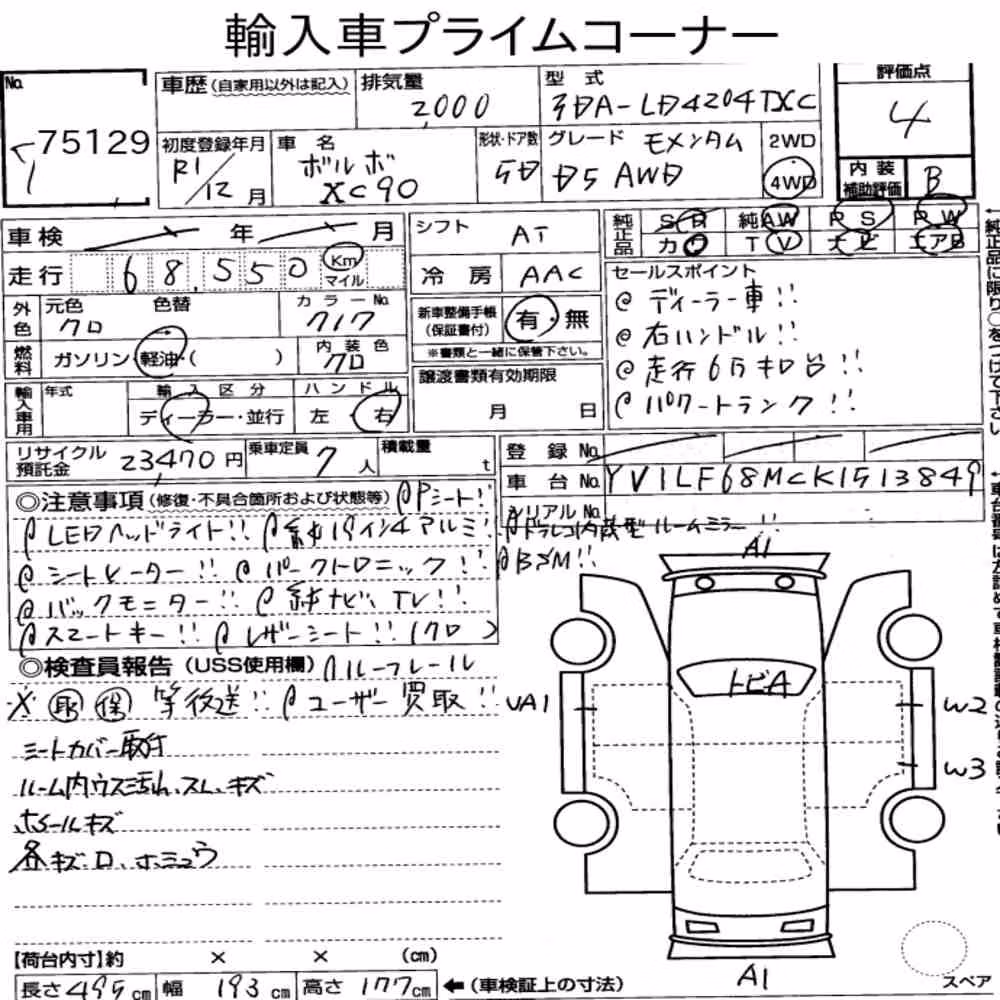 輸入車プライムコーナー
No. 75129
車歴 (自家用以外は記入)
排気量 2,000
型式 3DA-LD4204TXC
評価点 4
初度登録年月 R1/12月
車名 ボルボ XC90
形状・ドア数 5D
グレード モメンタム
D5 AWD
2WD
4WD
内装補助評価 B
車検 年 月
走行 68,550 Km マイル
シフト AT
冷房 AAC
純正品 SR 純AW PS PW
カワ TV ナビ エアB
外色 元色 クロ 色替 カラーNo. 717
燃料 ガソリン・軽油・( )
内装色 クロ
新車整備手帳(保証書付) 有・無
※書類と一緒に保管下さい。
譲渡書類有効期限
月 日
セールスポイント
ディーラー車!!
右ハンドル!!
走行6万キロ台!!
パワートランク!!
輸入車用 年式 輸入区分 ハンドル
ディーラー・並行 左・右
リサイクル預託金 23470円
乗車定員 7人
積載量 t
登録No.
車台No. YV1LF68MCK1513849
シリアルNo.
◎注意事項(修復・不具合箇所および状態等) Pシート!!
LEDヘッドライト!! 純19インチアルミ!! ドラレコ内蔵型ルームミラー!!
シートヒーター!! パークトロニック!! BSM!!
バックモニター!! 純ナビ、TV!!
スマートキー!! レザーシート!!(クロ)
◎検査員報告(USS使用欄) ルーフレール
※取保等後送!! ユーザー買取!!
シートカバー取付
ルーム内ウス汚れ、スレ、キズ
ホイールキズ
各キズ
A1
トビA
UA1
W2
W3
A1
スペア
【荷台内寸】約 × × (cm)
長さ495cm 幅193cm 高さ177cm ←(車検証上の寸法)